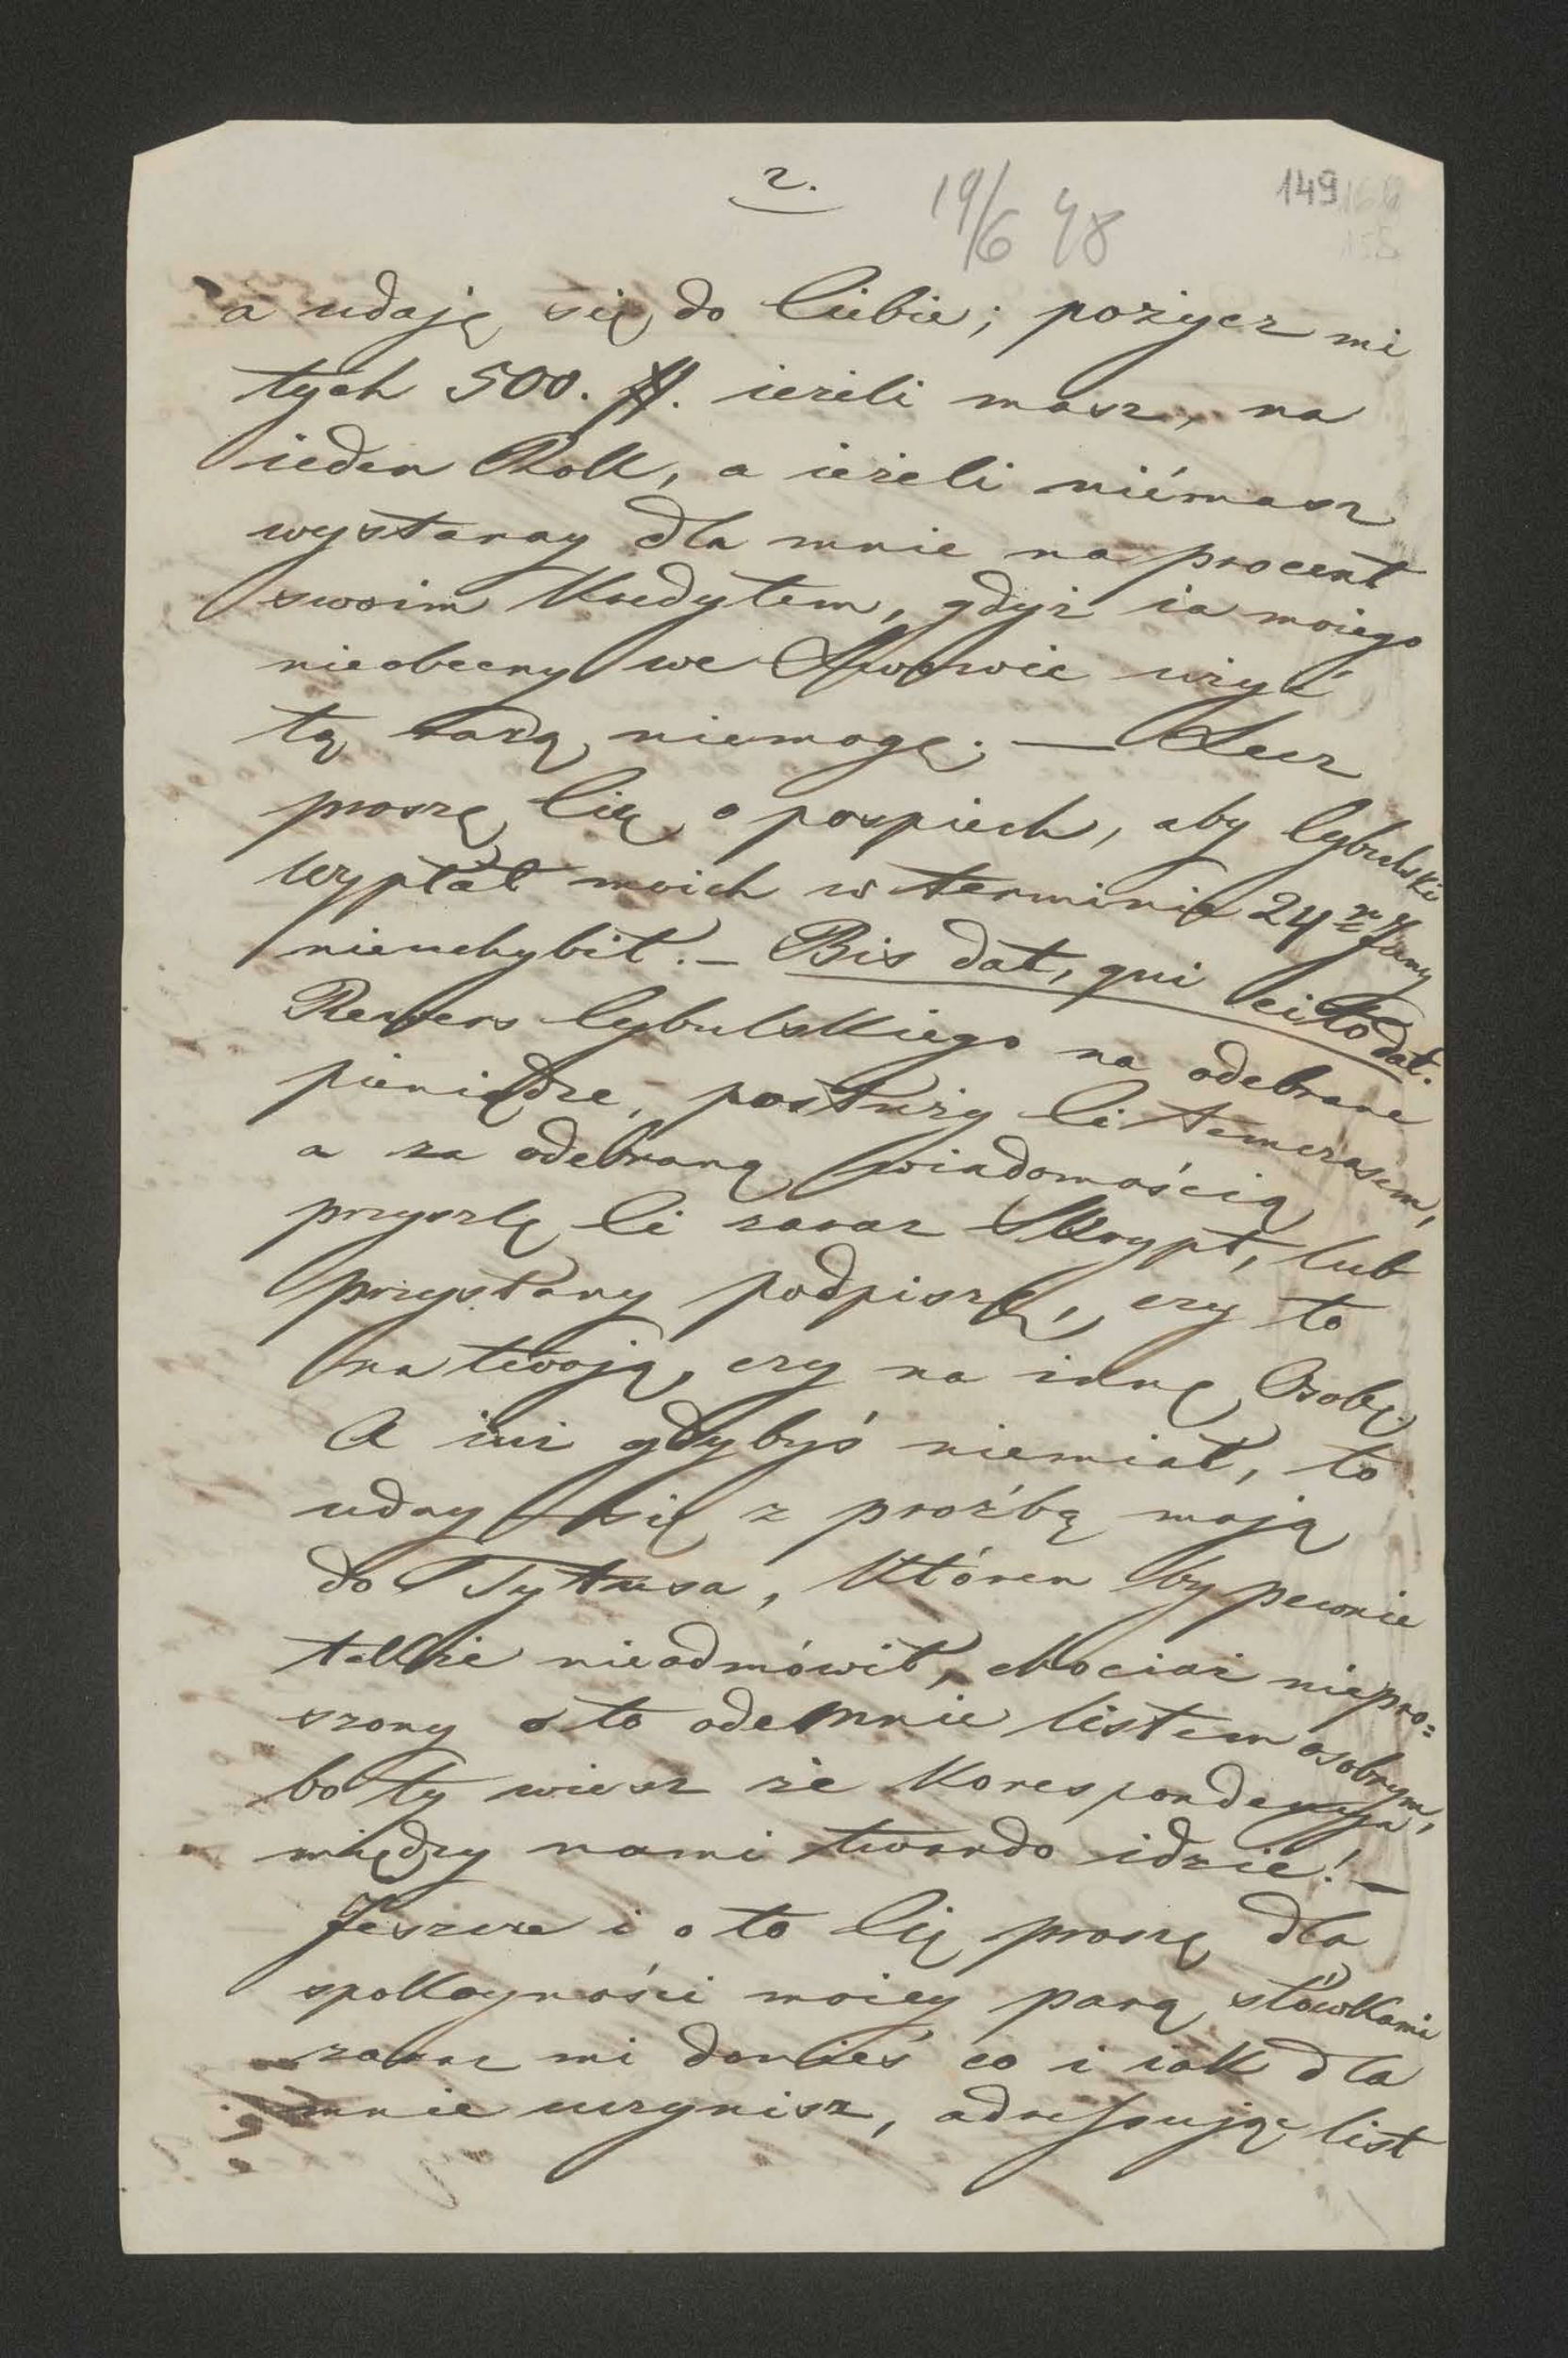 2.
19/6 48
149
a udaję się do Ciebie; pożycz mi
tych 500. fl. ieżeli masz, na
ieden Rok, a ieżeli niémasz
wystaray dla mnie na procent
swoim Kredytem, gdyż ia moiego
nieobecny we Lwowie użyć
tą razą niemogę; — Lecz
proszę Cię o pospiech, aby Cybulski
wypłat moich w terminie 24
nieuchybił. — Bis dat, qui cito dat.
Rewers Cybulskiego na odebrane
pieniądze, posłuży Ci temczasem,
a za odebraną wiadomością
przyszlę Ci zaraz Skrypt, lub
przysłany podpiszę, czy to
na twoją, czy na inną Osobę.
A iuż gdybyś niemiał, to
uday się z proźbą moją
do Tytusa, Któren by pewnie
także nieodmówił, chociaż niepro=
szony o to odemnie listem osobnym,
bo ty wiesz że Korespondencya
między nami twardo idzie! —
Jeszcze i o to Cię proszę dla
spokoyności moiey parą słówkami
zaraz mi donieś co i iak dla
mnie uczynisz, adresując list